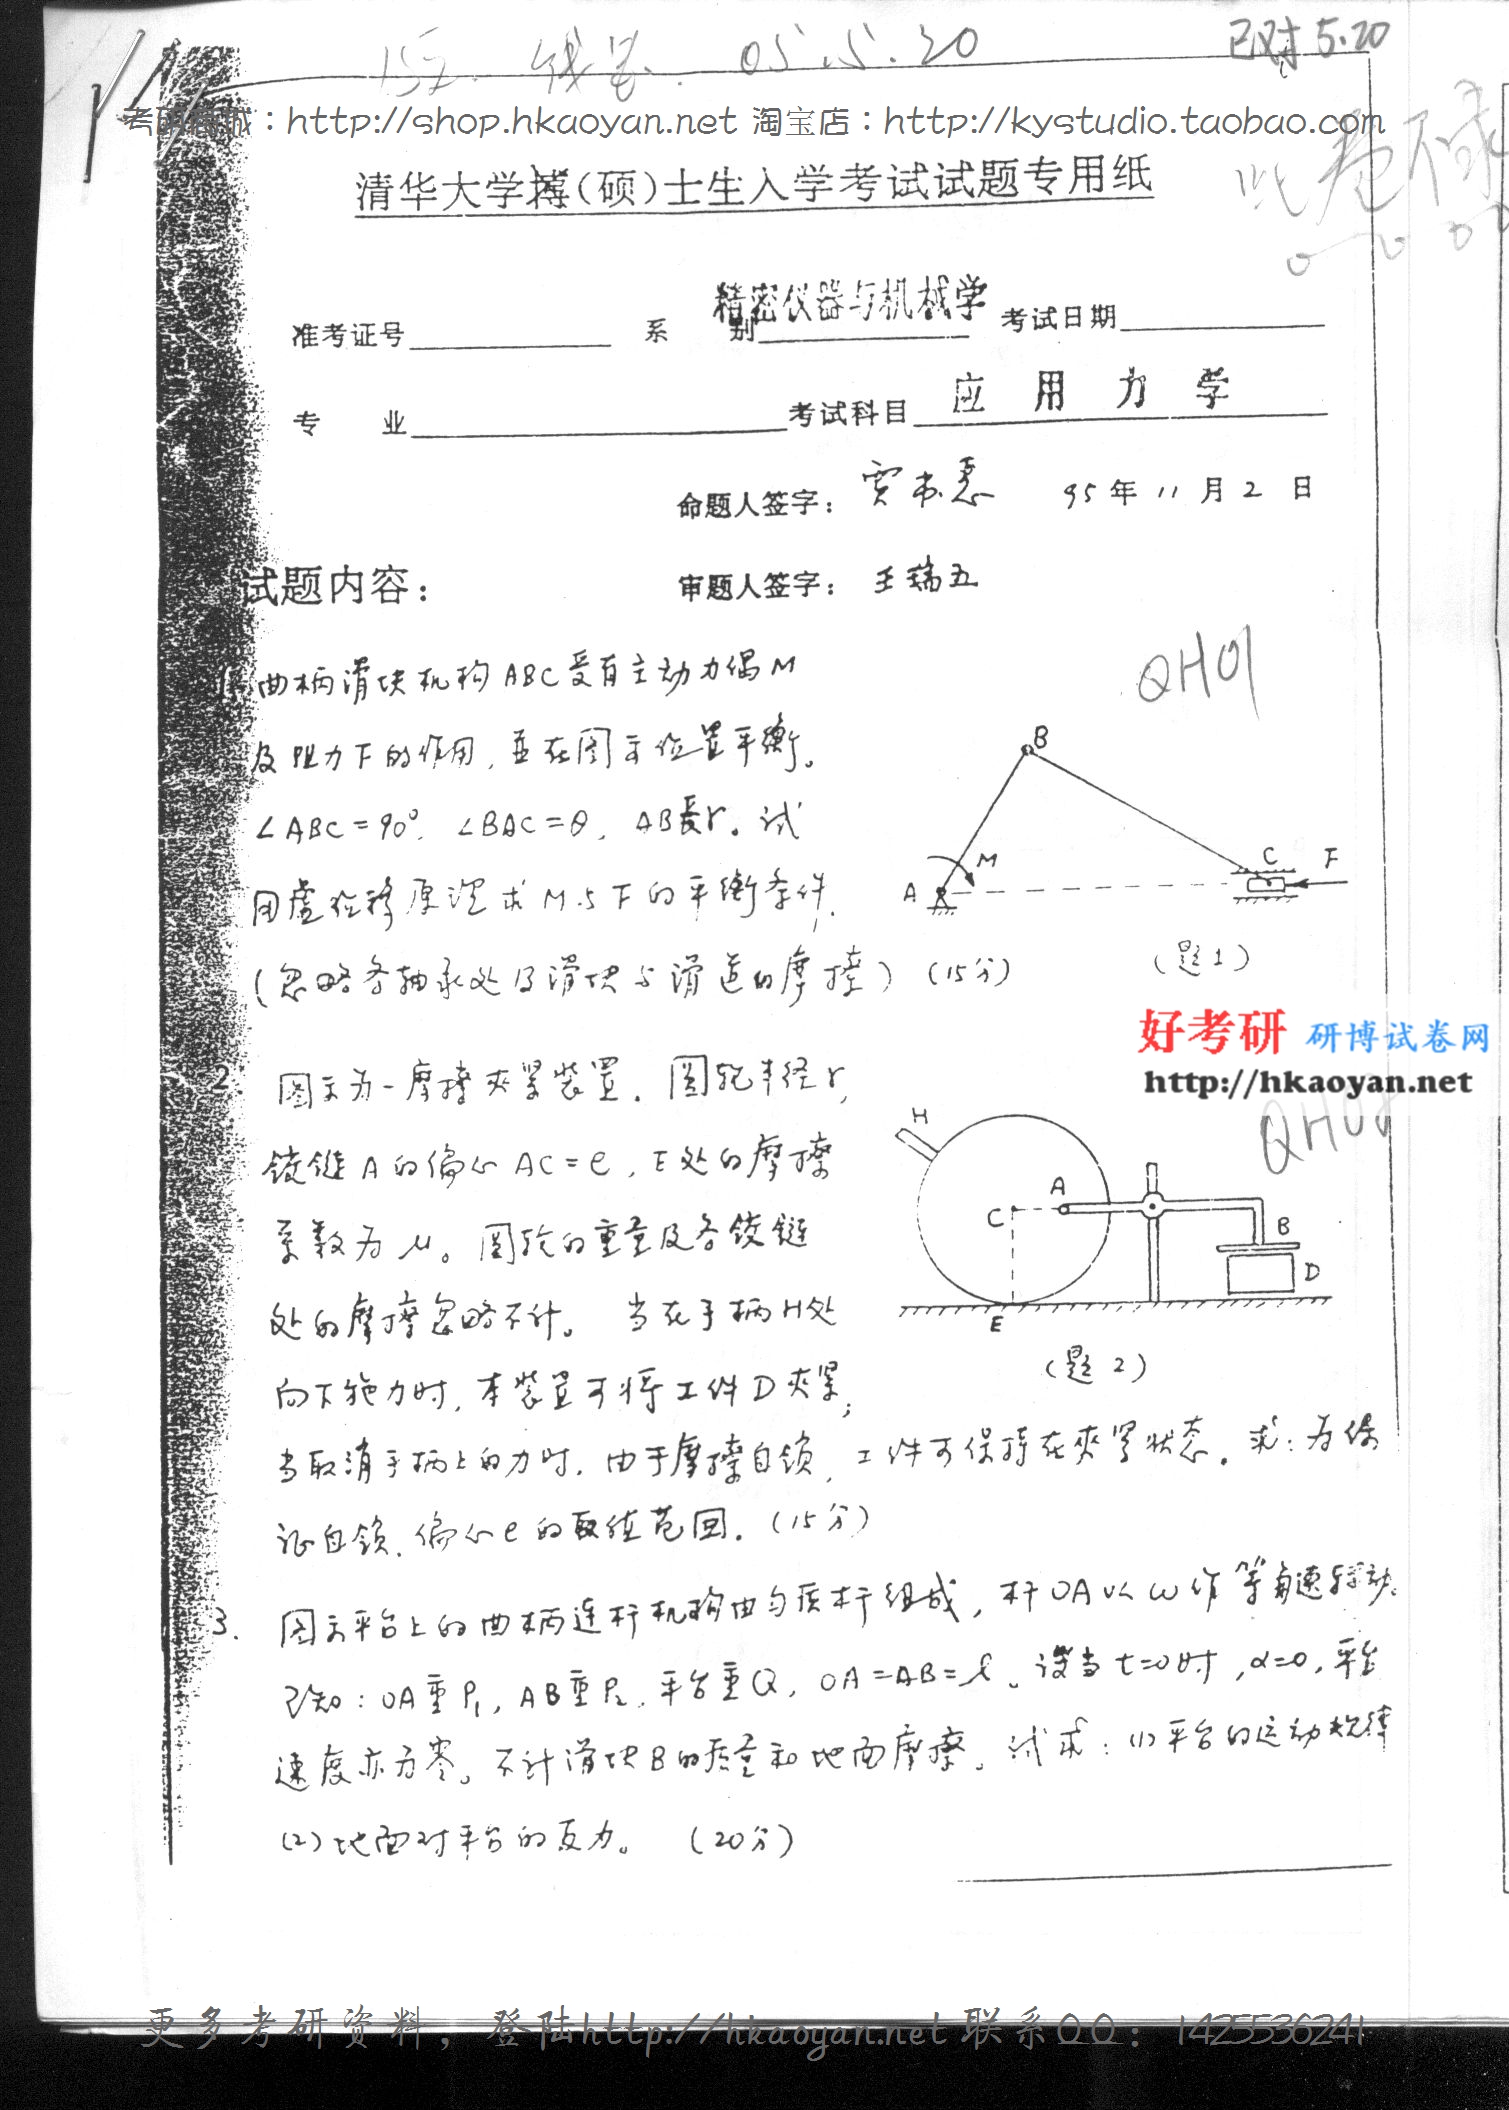 05.5.20
已对 5.20
考研商城：http://shop.hkaoyan.net 淘宝店：http://kystudio.taobao.com
此卷不录
清华大学博(硕)士生入学考试试题专用纸
准考证号 系别 精密仪器与机械学 考试日期
专业 考试科目 应用力学
命题人签字： 95年11月2日
试题内容： 审题人签字： 王瑞五
QH01
1. 曲柄滑块机构ABC受有主动力偶M
及阻力F的作用，并在图示位置平衡。
∠ABC=90°，∠BAC=θ，AB长r。试
用虚位移原理求M与F的平衡条件.
(忽略各轴承处及滑块与滑道的摩擦) (15分)
B
M
A
C
F
(题1)
好考研 研博试卷网
http://hkaoyan.net
QH08
2. 图示为一摩擦夹紧装置. 圆轮半径r,
铰链A的偏心AC=e，E处的摩擦
系数为μ。圆轮的重量及各铰链
处的摩擦忽略不计。当在手柄H处
向下施力时，本装置可将工件D夹紧；
当取消手柄上的力时，由于摩擦自锁，工件可保持在夹紧状态. 求：为保
证自锁，偏心e的取值范围. (15分)
H
A
C
B
D
E
(题2)
3. 图示平台上的曲柄连杆机构由匀质杆组成，杆OA以ω作等角速转动。
已知：OA重P₁，AB重P₂，平台重Q，OA=AB=l。设当t=0时，α=0，平台
速度亦为零。不计滑块B的质量和地面摩擦。试求：(1)平台的运动规律
(2)地面对平台的反力。 (20分)
更多考研资料，登陆http://hkaoyan.net 联系QQ：1425536241